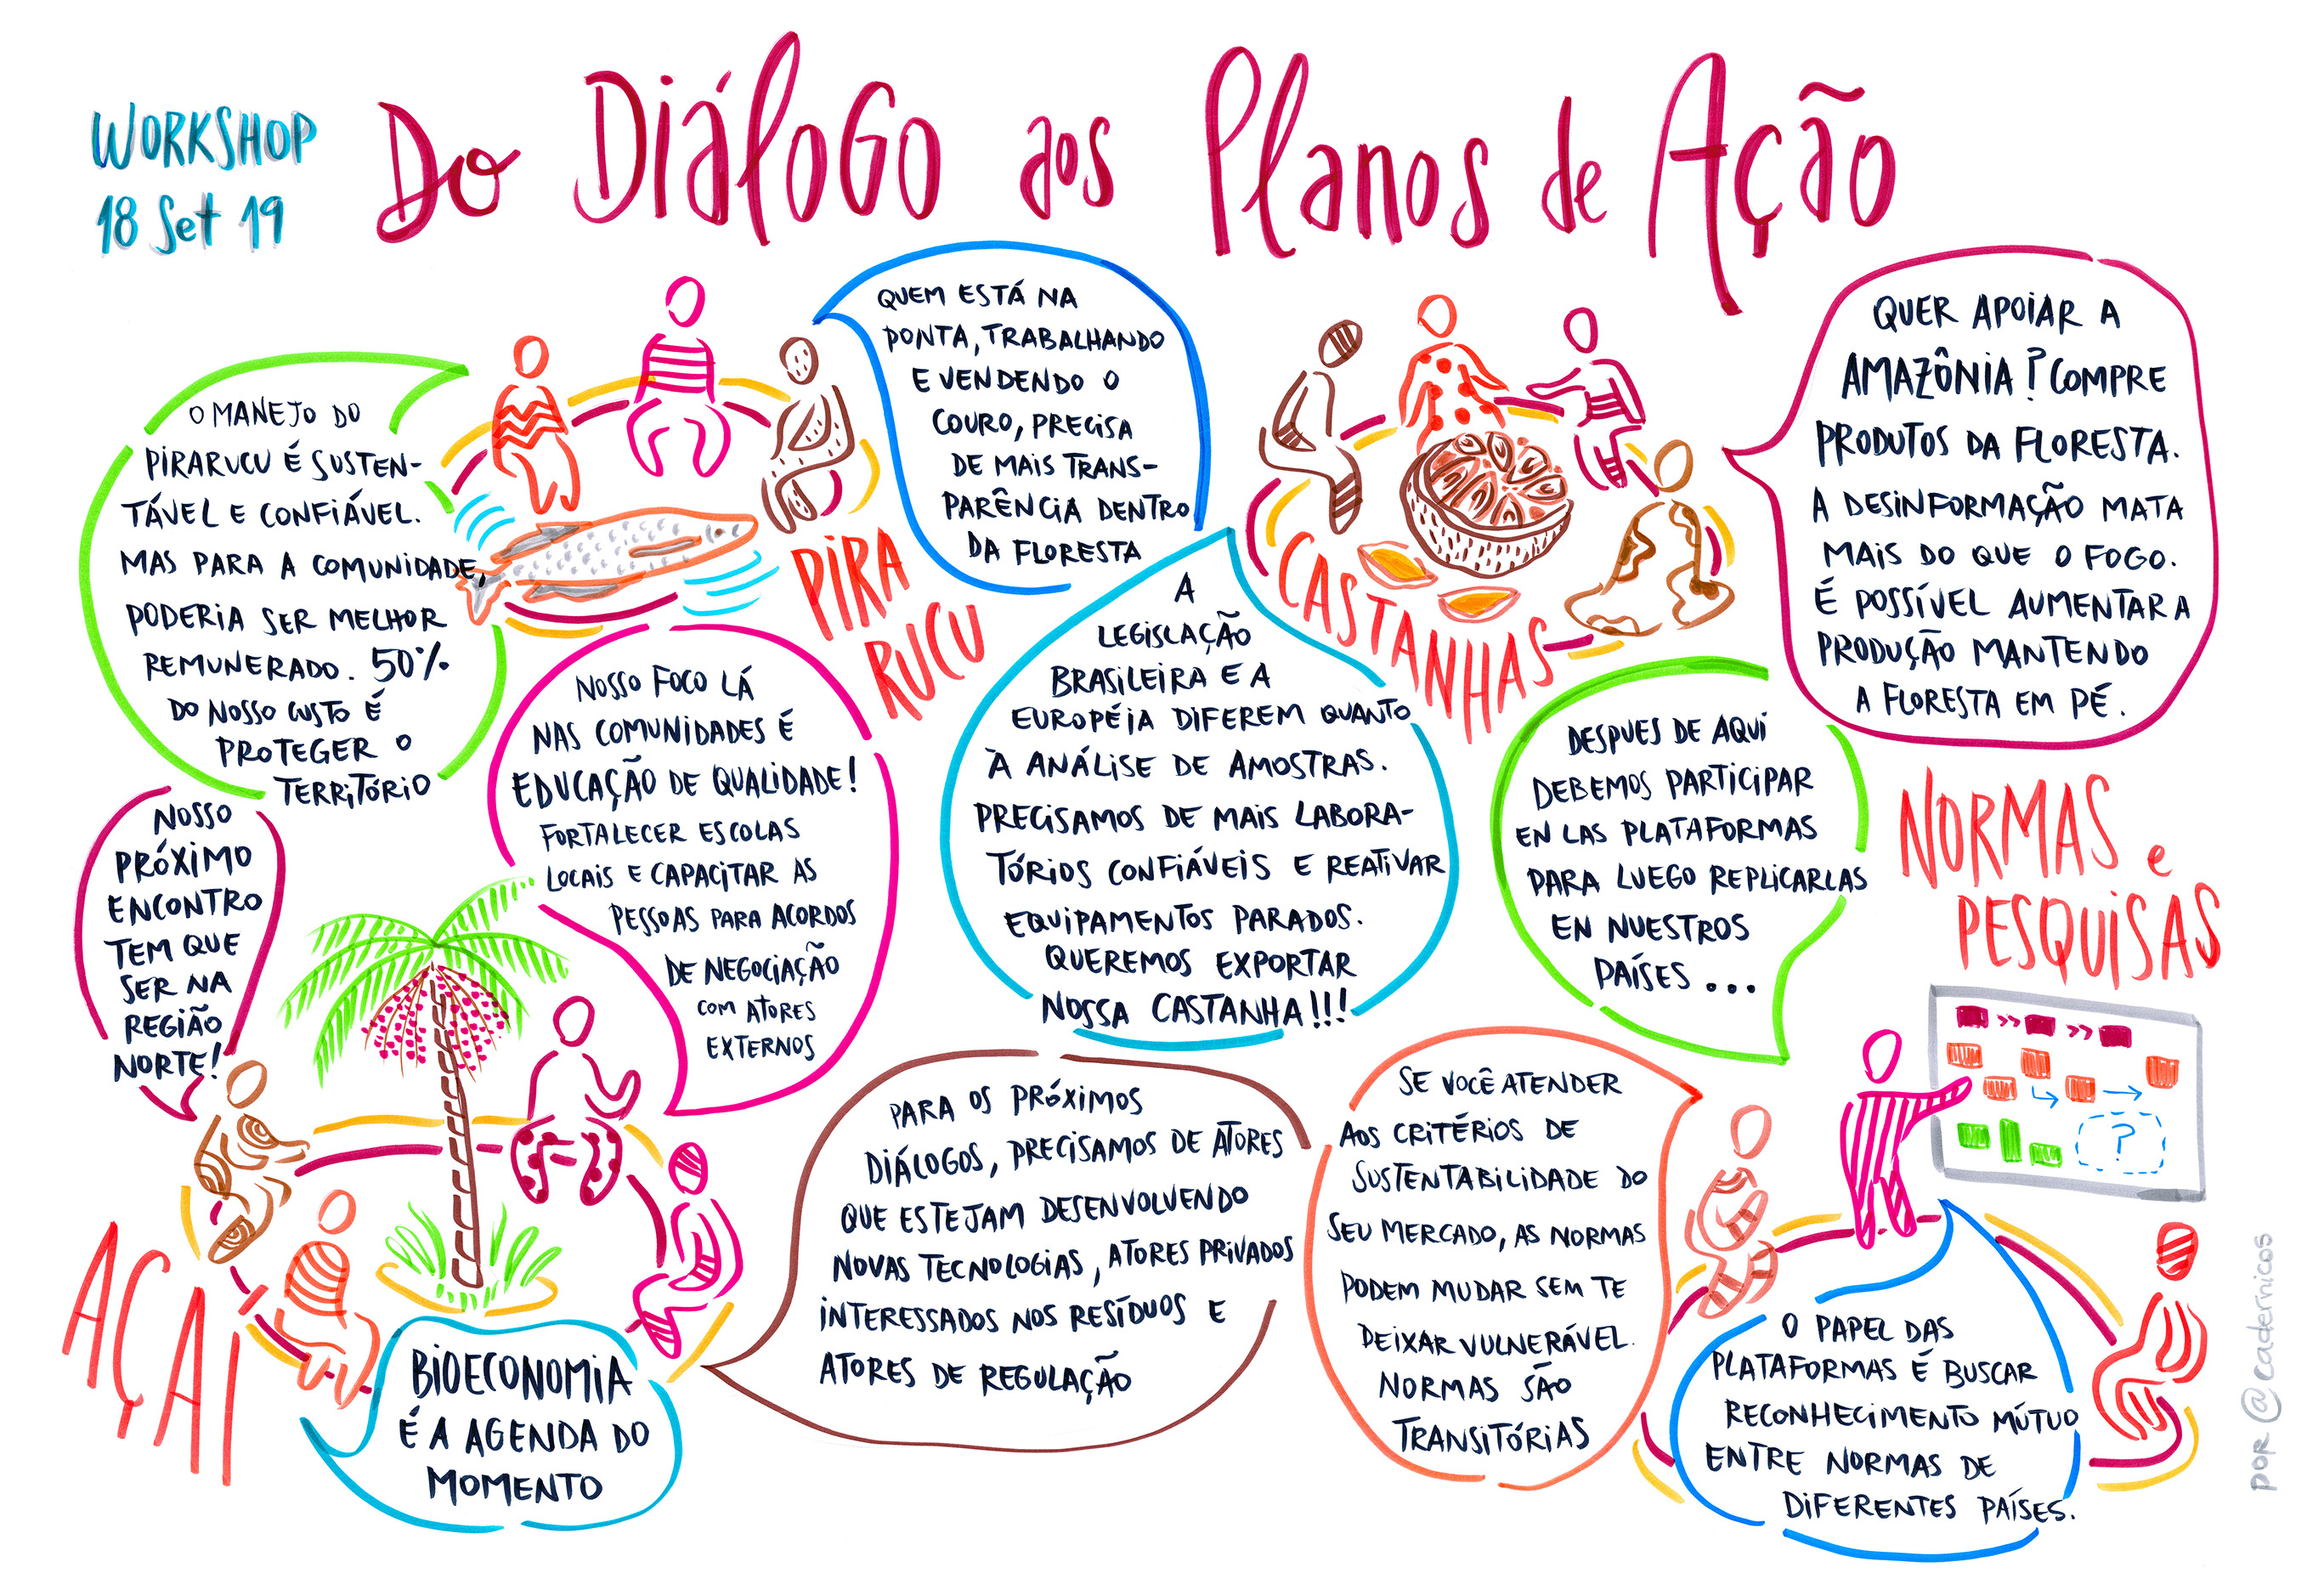 WORKSHOP
18 Set 19
Do Diálogo aos Planos de Ação
O MANEJO DO
PIRARUCU É SUSTEN-
TÁVEL E CONFIÁVEL.
MAS PARA A COMUNIDADE,
PODERIA SER MELHOR
REMUNERADO. 50%
DO NOSSO CUSTO É
PROTEGER O
TERRITÓRIO
QUEM ESTÁ NA
PONTA, TRABALHANDO
E VENDENDO O
COURO, PRECISA
DE MAIS TRANS-
PARÊNCIA DENTRO
DA FLORESTA
PIRA
RUCU
NOSSO FOCO LÁ
NAS COMUNIDADES É
EDUCAÇÃO DE QUALIDADE!
FORTALECER ESCOLAS
LOCAIS E CAPACITAR AS
PESSOAS PARA ACORDOS
DE NEGOCIAÇÃO
COM ATORES
EXTERNOS
CASTANHAS
A
LEGISLAÇÃO
BRASILEIRA E A
EUROPÉIA DIFEREM QUANTO
À ANÁLISE DE AMOSTRAS.
PRECISAMOS DE MAIS LABORA-
TÓRIOS CONFIÁVEIS E REATIVAR
EQUIPAMENTOS PARADOS.
QUEREMOS EXPORTAR
NOSSA CASTANHA!!!
QUER APOIAR A
AMAZÔNIA? COMPRE
PRODUTOS DA FLORESTA.
A DESINFORMAÇÃO MATA
MAIS DO QUE O FOGO.
É POSSÍVEL AUMENTAR A
PRODUÇÃO MANTENDO
A FLORESTA EM PÉ.
DESPUES DE AQUI
DEBEMOS PARTICIPAR
EN LAS PLATAFORMAS
PARA LUEGO REPLICARLAS
EN NUESTROS
PAÍSES...
NORMAS e
PESQUISAS
NOSSO
PRÓXIMO
ENCONTRO
TEM QUE
SER NA
REGIÃO
NORTE!
AÇAI
BIOECONOMIA
É A AGENDA DO
MOMENTO
PARA OS PRÓXIMOS
DIÁLOGOS, PRECISAMOS DE ATORES
QUE ESTEJAM DESENVOLVENDO
NOVAS TECNOLOGIAS, ATORES PRIVADOS
INTERESSADOS NOS RESÍDUOS E
ATORES DE REGULAÇÃO
SE VOCÊ ATENDER
AOS CRITÉRIOS DE
SUSTENTABILIDADE DO
SEU MERCADO, AS NORMAS
PODEM MUDAR SEM TE
DEIXAR VULNERÁVEL.
NORMAS SÃO
TRANSITÓRIAS
?
O PAPEL DAS
PLATAFORMAS É BUSCAR
RECONHECIMENTO MÚTUO
ENTRE NORMAS DE
DIFERENTES PAÍSES.
por @cadernicos